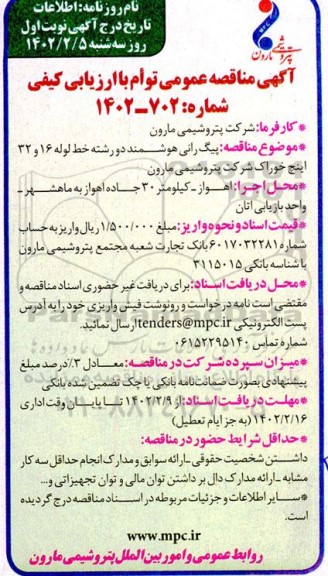 نام روزنامه: اطلاعات
تاریخ درج آگهی نوبت اول
روز سه شنبه ۱۴۰۲/۲/۵
پتروشیمی مارون
آگهی مناقصه عمومی توأم با ارزیابی کیفی
شماره: ۷۰۲-۱۴۰۲
*کارفرما: شرکت پتروشیمی مارون
*موضوع مناقصه: پیگ رانی هوشمند دو رشته خط لوله ۱۶ و ۳۲
اینچ خوراک شرکت پتروشیمی مارون
*محل اجرا: اهواز ـ کیلومتر ۳۰ جاده اهواز به ماهشهر ـ
واحد بازیابی اتان
*قیمت اسناد و نحوه واریز: مبلغ ۱/۵۰۰/۰۰۰ ریال واریز به حساب
شماره ۶۰۱۷۰۳۲۲۸۱ بانک تجارت شعبه مجتمع پتروشیمی مارون
با شناسه بانکی ۳۱۱۵۰۱۵
*محل دریافت اسناد: برای دریافت غیر حضوری اسناد مناقصه و
مقتضی است نامه درخواست و رونوشت فیش واریزی خود را به آدرس
پست الکترونیکی tenders@mpc.ir ارسال نمائید.
شماره تماس ۰۶۱۵۲۲۹۵۱۴۰
*میزان سپرده شرکت در مناقصه: معادل ۳٪ درصد مبلغ
پیشنهادی بصورت ضمانت نامه بانکی یا چک تضمین شده بانکی
*مهلت دریافت اسناد: از ۱۴۰۲/۲/۹ تا پایان وقت اداری
۱۴۰۲/۲/۱۶ (به جز ایام تعطیل)
*حداقل شرایط حضور در مناقصه:
داشتن شخصیت حقوقی ـ ارائه سوابق و مدارک انجام حداقل سه کار
مشابه ـ ارائه مدارک دال بر داشتن توان مالی و توان تجهیزاتی و...
*سایر اطلاعات و جزئیات مربوطه در اسناد مناقصه درج گردیده
است.
www.mpc.ir
روابط عمومی و امور بین الملل پتروشیمی مارون